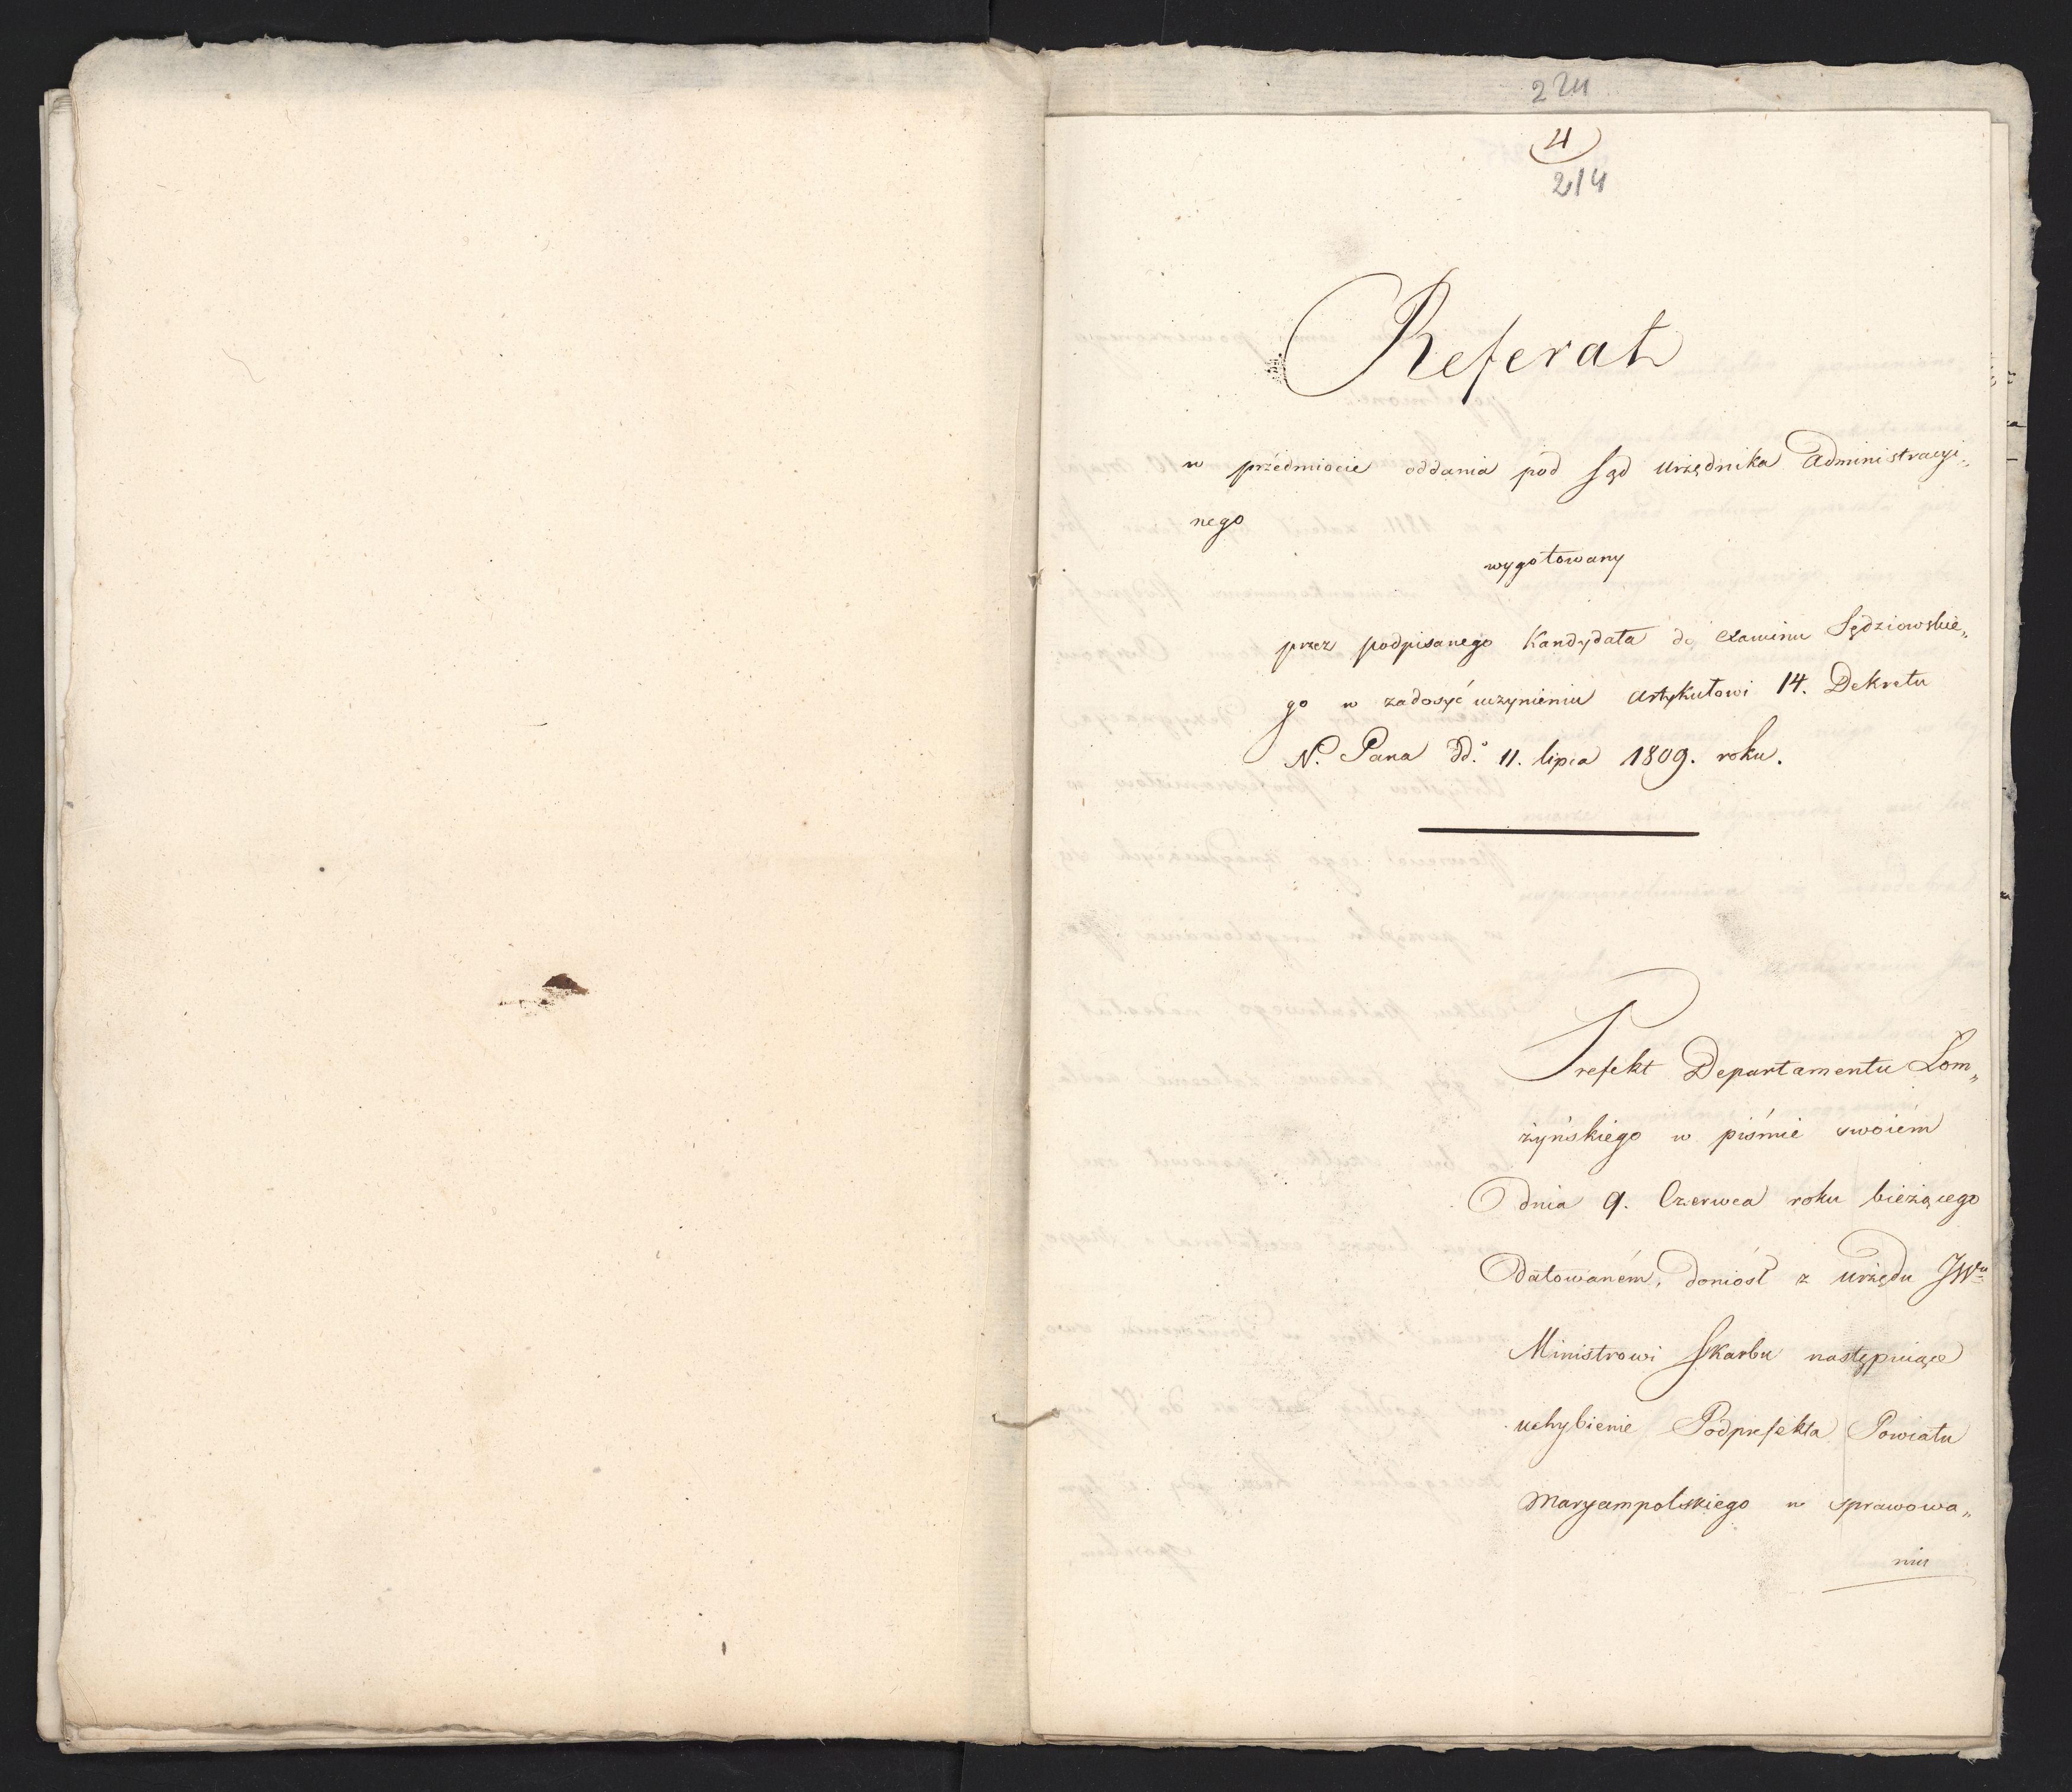 224
4
214
Referat
w przedmiocie oddania pod Sąd Urzędnika Administracyi„
nego
wygotowany
przez podpisanego Kandydata do examinu Sędziowskie„
go w zadosyć uczynieniu Artykułowi 14. Dekretu
N. Pana dd. 11. lipca 1809. roku.
Prefekt Departamentu Łom„
żyńskiego w piśmie swoiém
dnia 9. Czerwca roku bieżącego
datowaném, doniósł z urzędu JWu
Ministrowi Skarbu następuiące
uchybienie Podprefekta Powiatu
Maryampolskiego w sprawowa„
niu